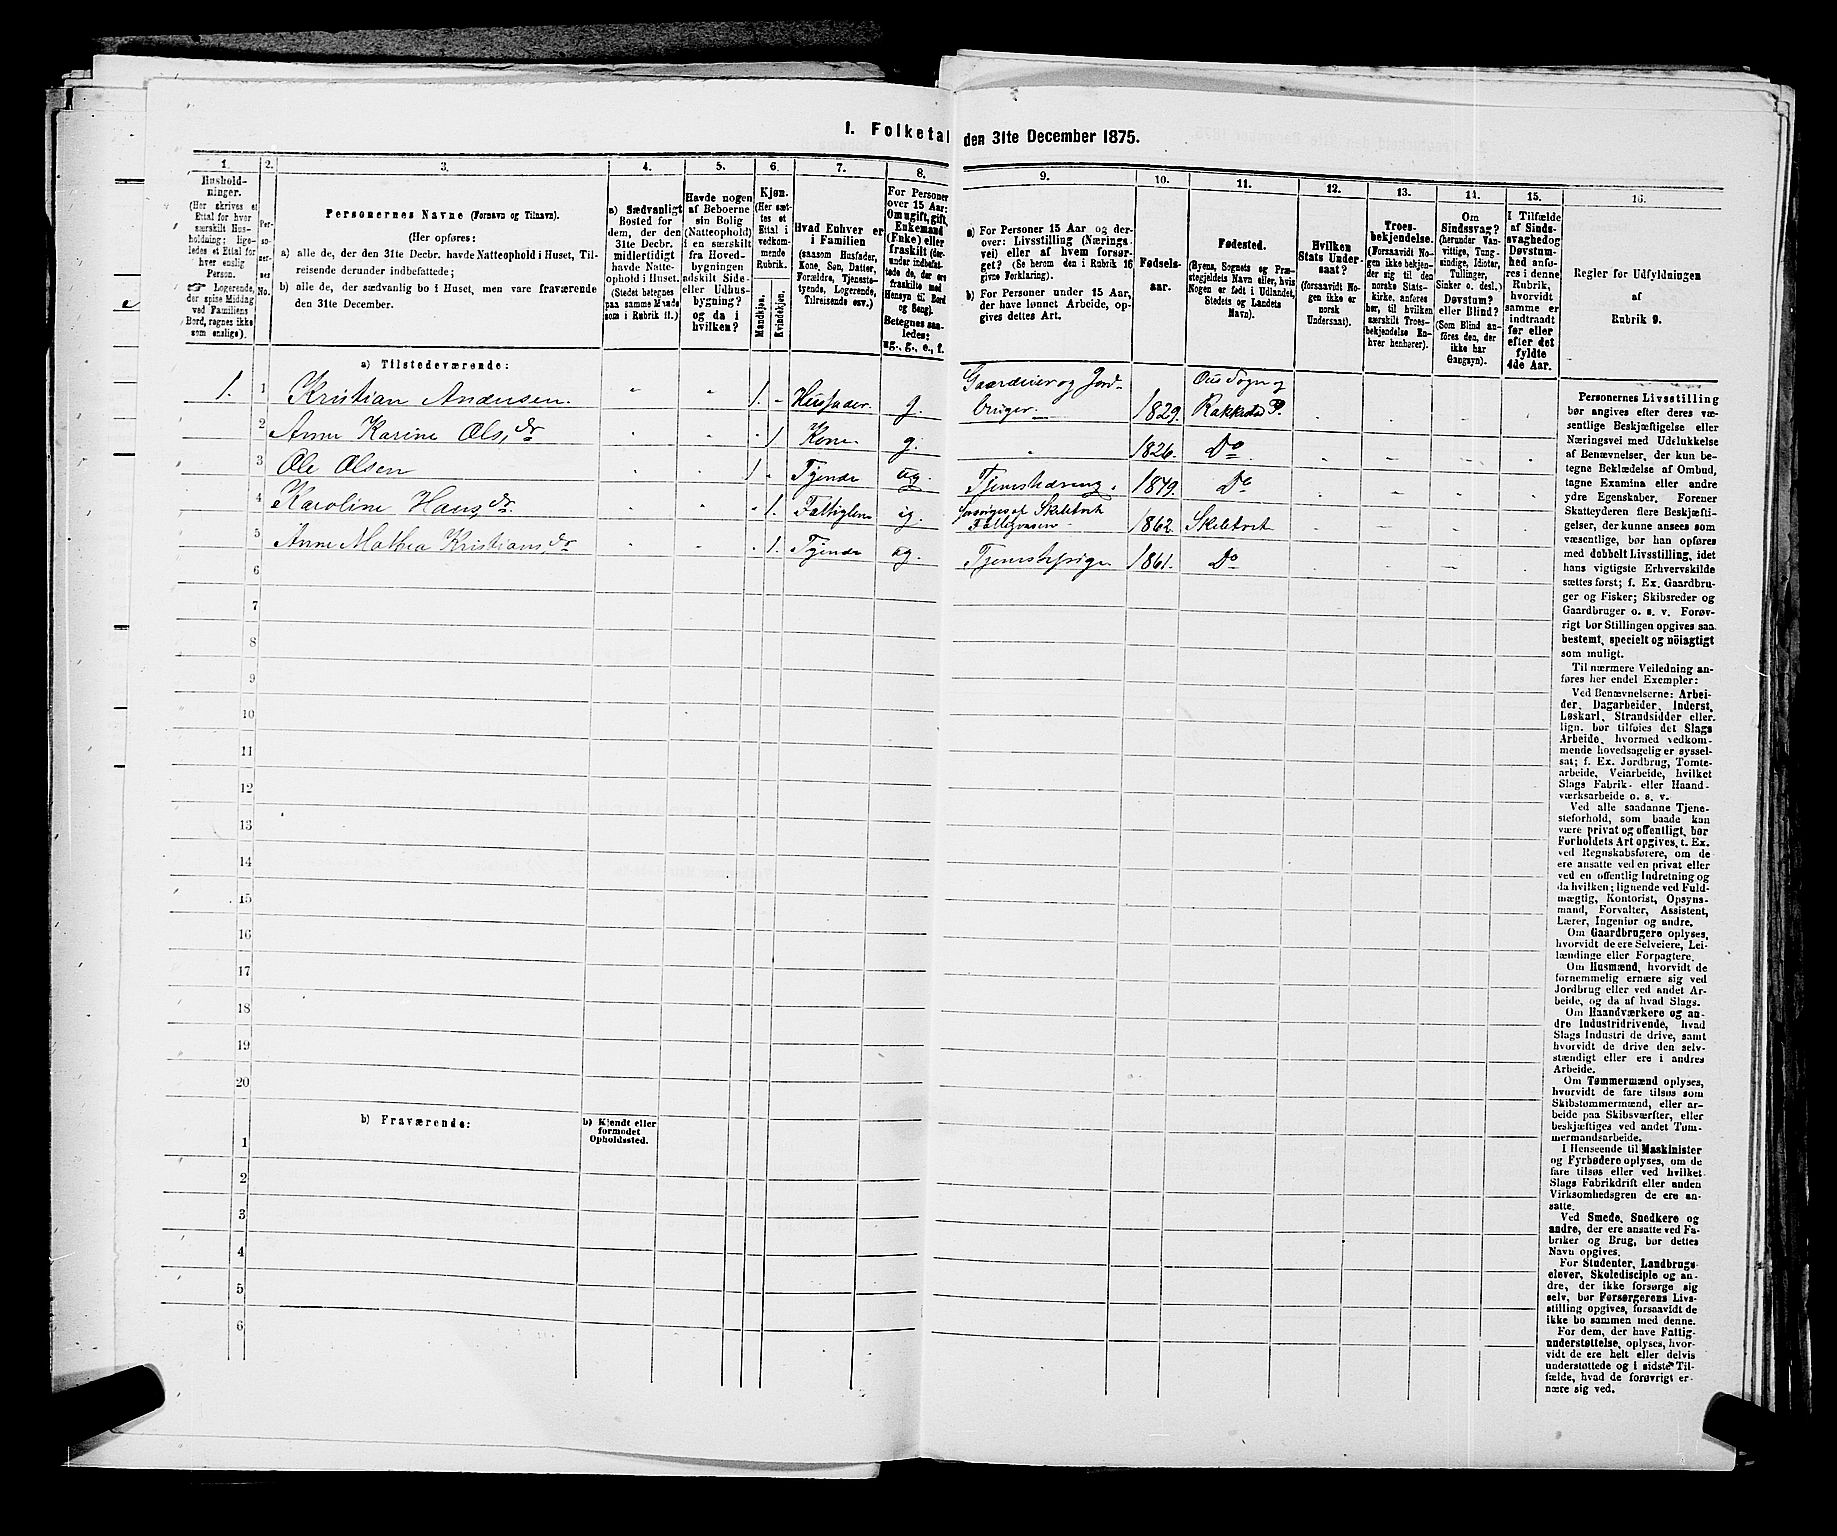 I. Folketal den 31te December 1875.
1. 2. 3. 4. 5. 6. 7. 8. 9. 10. 11. 12. 13. 14. 15. 16.
Hushold-
ninger.
(Her skrives et
Ettal for hver
særskilt Hus-
holdning; lige-
ledes et Ettal for
hver enslig
Person.
Logerende,
der spise Middag
ved Familiens
Bord, regnes ikke
som enslige).
Per-
so-
ner-
nes
No.
Personernes Navne (Fornavn og Tilnavn).
(Her opføres:
a) alle de, der den 31te Decbr. havde Natteophold i Huset, Til-
reisende derunder indbefattede;
b) alle de, der sædvanlig bo i Huset, men vare fraværende
den 31te December.
a) Sædvanligt
Bosted for
dem, der den
31te Decbr.
midlertidigt
havde Natte-
ophold i Huset.
(Stedet betegnes
paa samme Maade
som i Rubrik 11.)
Havde nogen
af Beboerne
sin Bolig
(Natteophold)
i en særskilt
fra Hoved-
bygningen
adskilt Side-
eller Udhus-
bygning?
og da i
hvilken?
Kjøn.
(Her sæt-
tes et
Ettal i
vedkom-
mende
Rubrik.
Mandkjøn.
Kvindekjøn.
Hvad Enhver er
i Familien
(saasom Husfader,
Kone, Søn, Datter,
Forældre, Tjeneste-
tyende, Logerende,
Tilreisende osv.)
For Personer
over 15 Aar:
Om ugift, gift,
Enkemand
(Enke) eller
fraskilt (der-
under indbefat-
tede de, der ere
fraskilte med
Hensyn til Bord
og Seng).
Betegnes saa-
ledes:
ug., g., e., f.
a) For Personer 15 Aar og der-
over: Livsstilling (Nærings-
vei) eller af hvem forsør-
get? (Se herom den i Rubrik 16
givne Forklaring).
b) For Personer under 15 Aar,
der have lønnet Arbeide, op-
gives dettes Art.
Fødsels-
aar.
Fødested.
(Byens, Sognets og Præ-
stegjeldets Navn eller, hvis
Nogen er født i Udlandet,
Stedets og Landets
Navn).
Hvilken
Stats Under-
saat?
(forsaavidt No-
gen ikke er
norsk
Undersaat).
Troes-
bekjendelse.
(Forsaavidt No-
gen ikke bekjen-
der sig til den
norske Stats-
kirke, anføres
her, til hvilken
særskilt Troes-
bekjendelse En-
hver henhører).
Om
Sindssvag?
(herunder Van-
vittige, Tung-
sindige, Idioter,
Tullinger,
Sinker o. desl.)
Døvstum?
eller Blind?
(Som Blind an-
føres den, der
ikke har
Gangsyn).
I Tilfælde
af Sinds-
svaghed og
Døvstum-
hed anfø-
res i denne
Rubrik,
hvorvidt
samme er
indtraadt
før eller
efter det
fyldte
4de Aar.
Regler for Udfyldningen
af
Rubrik 9.
a) Tilstedeværende:
1. 1 Kristian Andersen. 1. Husfader. g. Gaardeier og Jord-bruger. 1829. Ous Sogn og Rakkestad P.
2 Anne Karine Ols.dr 1 Kone g. 1826. Do
3 Ole Olsen 1 Tyende ug. 1849. Do
4 Karoline Hans.dr. 1. Fattiglem ug. forsørges af Skibtvet Fattigvæsen. 1862. Skibtvet
5 Anne Mathea Kristians.dr 1. Tyende ug. Tjenestepige 1861. Do
6
7
8
9
10
11
12
13
14
15
16
17
18
19
20
b) Fraværende:
b) Kjendt eller
formodet
Opholdssted.
1
2
3
4
5
6
Personernes Livsstilling
bør angives efter deres væ-
sentlige Beskjæftigelse eller
Næringsvei med Udelukkelse
af Benævnelser, der kun be-
tegne Beklædelse af Ombud,
tagne Examina eller andre
ydre Egenskaber. Forener
Skatteyderen flere Beskjæfti-
gelser, der kunne ansees som
væsentlige, bør han opføres
med dobbelt Livsstilling, idet
hans vigtigste Erhvervskilde
sættes først; f. Ex. Gaardbru-
ger og Fisker; Skibsreder og
Gaardbruger o. s. v. Forøv-
rigt bør Stillingen opgives saa
bestemt, specielt og nöiagtigt
som muligt.
Til nærmere Veiledning an-
føres her endel Exempler:
Ved Benævnelserne: Arbei-
der, Dagarbeider, Inderst,
Løskarl, Strandsidder eller
lign. bør tilføies det Slags
Arbeide, hvormed vedkom-
mende hovedsagelig er syssel-
sat; f. Ex. Jordbrug, Tomte-
arbeide, Veiarbeide, hvilket
Slags Fabrik- eller Haand-
værksarbeide o. s. v.
Ved alle saadanne Tjene-
steforhold, som baade kan
være privat og offentligt, bør
Forholdets Art opgives, t. Ex.
ved Regnskabsførere, om de
ere ansatte ved en privat eller
ved en offentlig Indretning og
da hvilken; lignende ved Fuld-
mægtig, Kontorist, Opsyns-
mand, Forvalter, Assistent,
Lærer, Ingeniør og andre.
Om Gaardbrugere oplyses,
hvorvidt de ere Selveiere, Lei-
lændinge eller Forpagtere.
Om Husmænd, hvorvidt de
fornemmelig ernære sig ved
Jordbrug eller ved andet Ar-
beide, og da af hvad Slags.
Om Haandværkere og an-
dre Industridrivende, hvad
Slags Industri de drive, samt
hvorvidt de drive den selv-
stændigt eller ere i andres
Arbeide.
Om Tømmermænd oplyses,
hvorvidt de fare tilsøs som
Skibstømmermænd, eller ar-
beide paa Skibsværfter, eller
beskjæftiges ved andet Tøm-
mermandsarbeide.
I Henseende til Maskinister
og Fyrbødere oplyses, om de
fare tilsøs eller ved hvilket
Slags Fabrikdrift eller anden
Virksomhedsgren de ere an-
satte.
Ved Smede, Snedkere og
andre, der ere ansatte ved Fa-
briker og Brug, bør dettes
Navn opgives.
For Studenter, Landbrugs-
elever, Skoledisciple og an-
dre, der ikke forsørge sig
selv, bør Forsørgerens Livs-
stilling opgives, forsaavidt de
ikke bo sammen med denne.
For dem, der have Fattig-
understøttelse, oplyses, hvor-
vidt de ere helt eller delvis
understøttede og i sidste Til-
fælde, hvad de forøvrigt er-
nære sig ved.